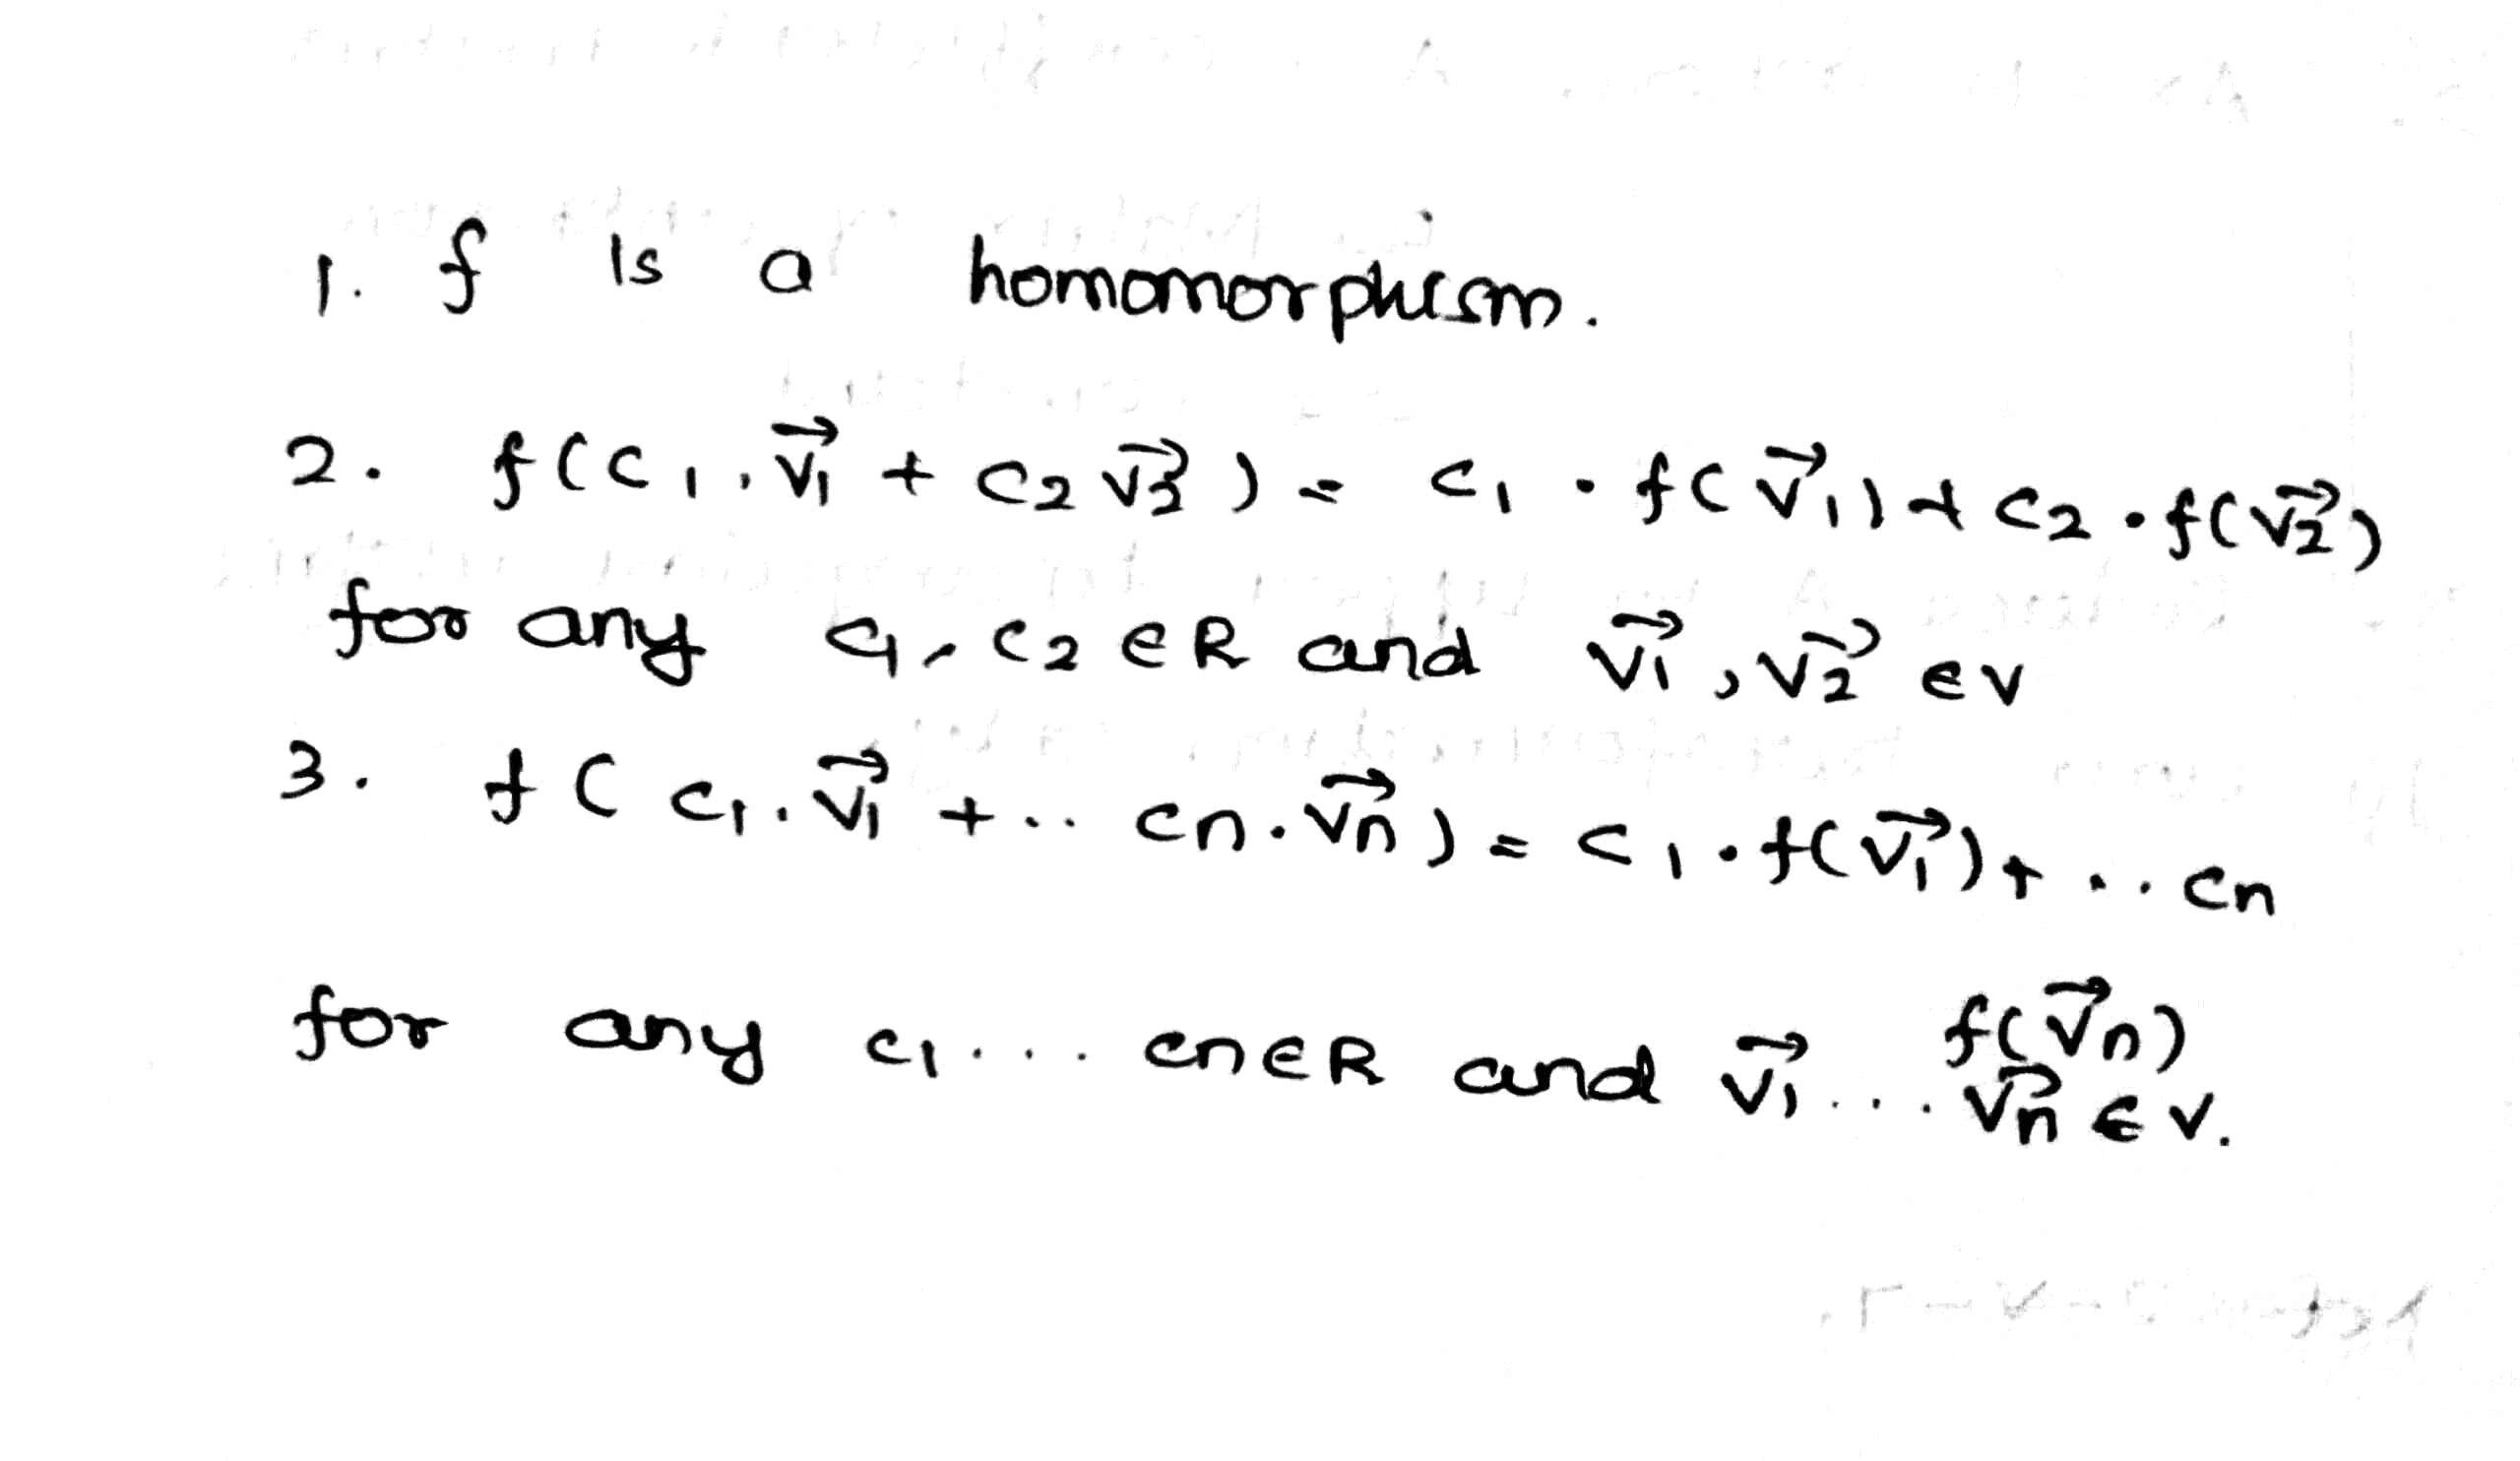 1. f Is a homomorphism.
2. f(c₁.v⃗₁ + c₂v⃗₂) = c₁ . f(v⃗₁) + c₂ . f(v⃗₂)
for any c₁, c₂ ∈ R and v⃗₁, v⃗₂ ∈ V
3. f(c₁.v⃗₁ + .. cn.v⃗n) = c₁.f(v⃗₁) + .. cn
f(v⃗n)
for any c₁... cn ∈ R and v⃗₁ ... v⃗n ∈ V.